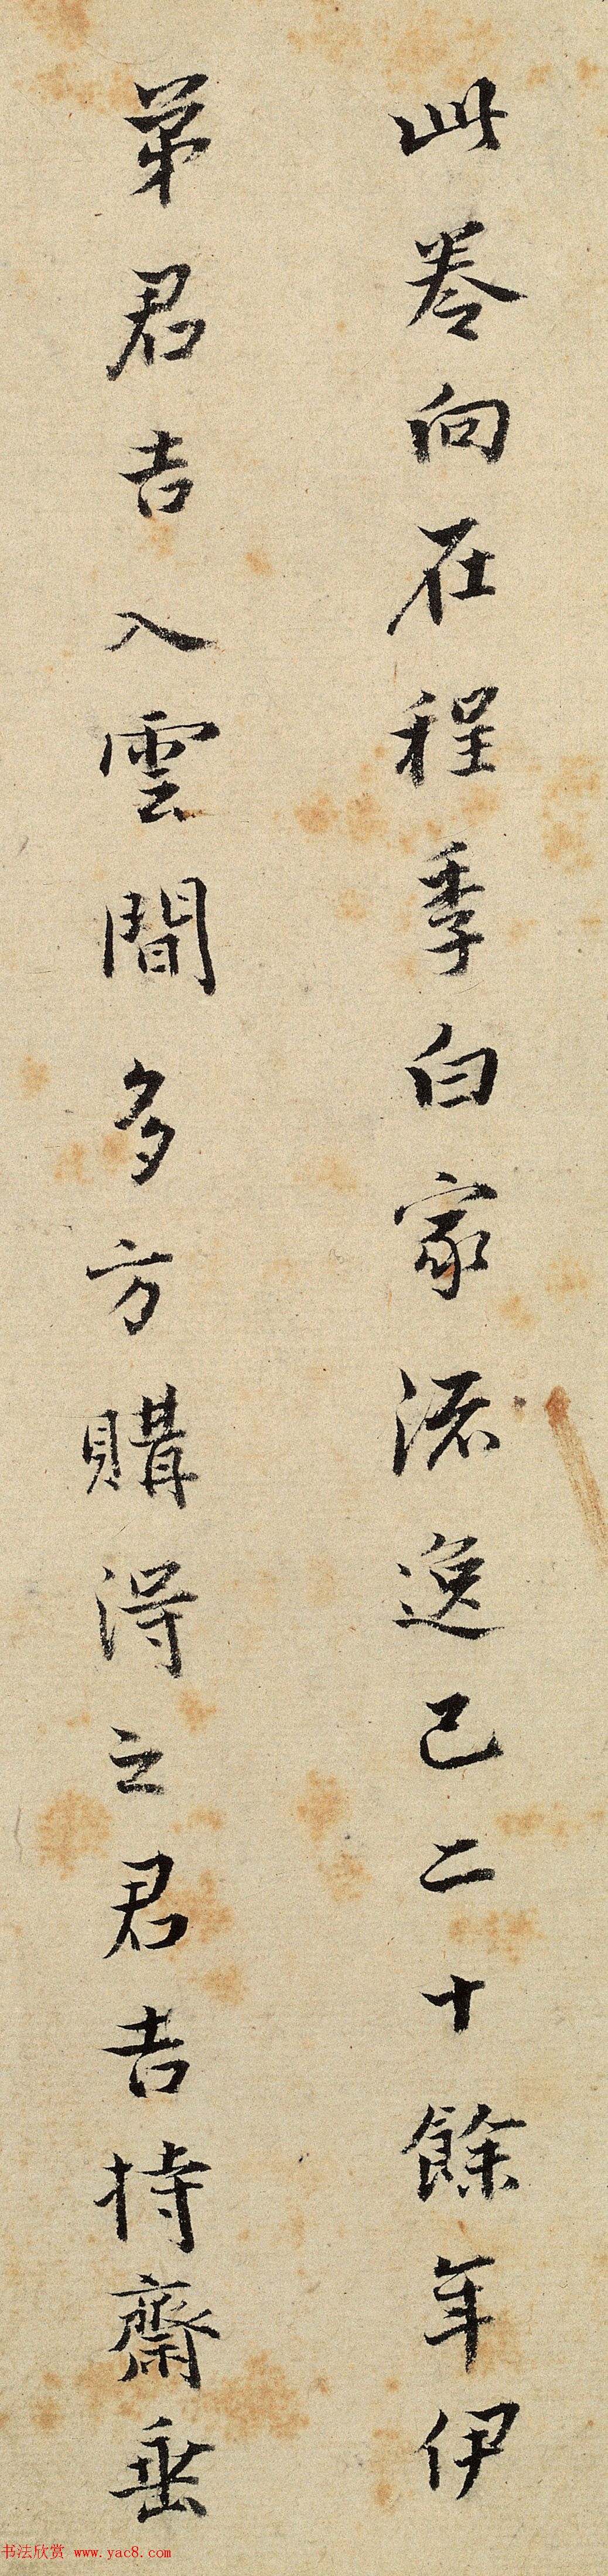 此卷向在程季白家流逸已二十餘年伊
弟君吉入雲間多方購得之君吉持齋垂
书法欣赏 www.yac8.com